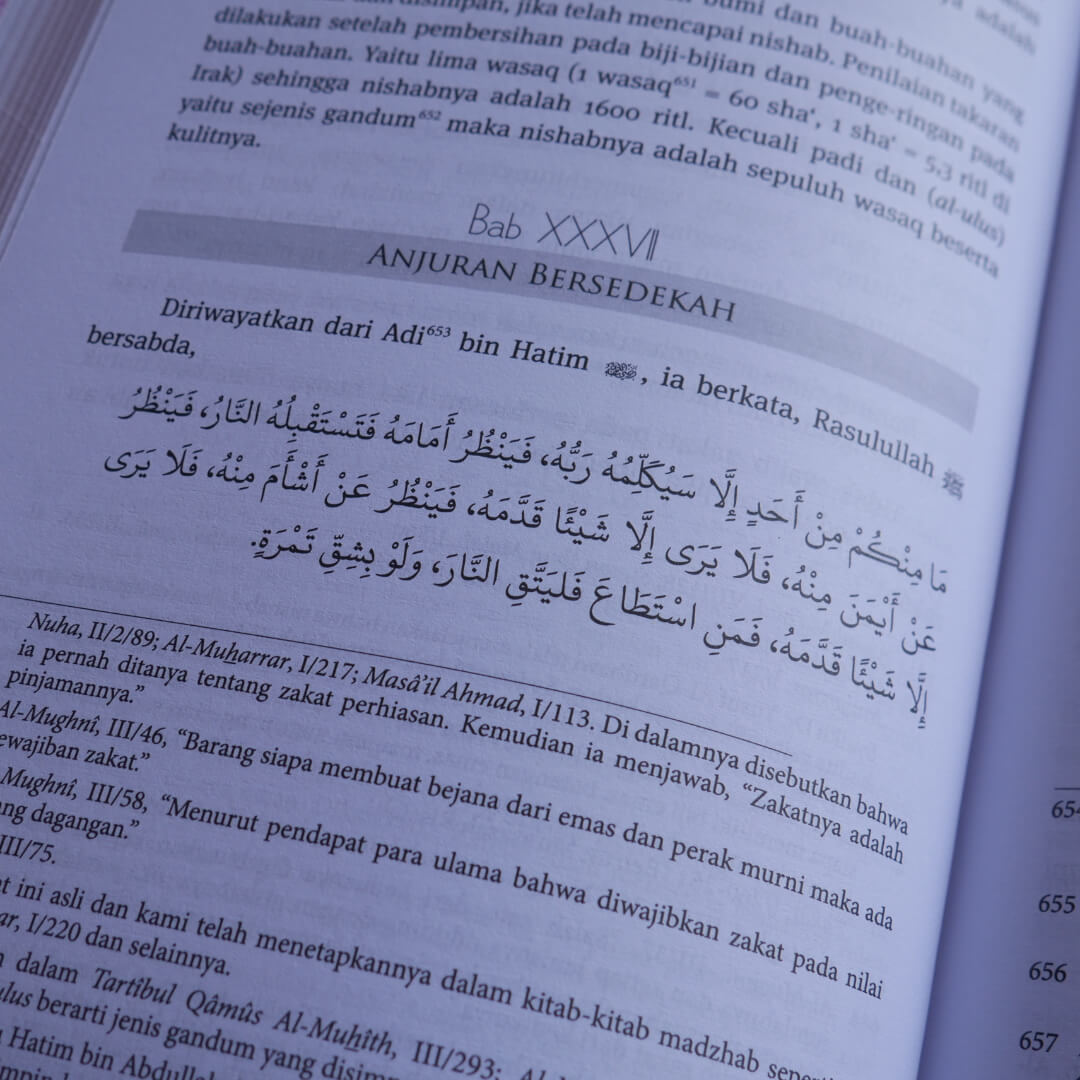 bumi dan buah-buahan yang
disimpan, jika telah mencapai nishab. Penilaian takaran
dilakukan setelah pembersihan pada biji-bijian dan penge-ringan pada
buah-buahan. Yaitu lima wasaq (1 wasaq⁶⁵¹ = 60 sha‘, 1 sha‘ = 5,3 ritl di
Irak) sehingga nishabnya adalah 1600 ritl. Kecuali padi dan (al-ulus)
yaitu sejenis gandum⁶⁵² maka nishabnya adalah sepuluh wasaq beserta
kulitnya.
Bab XXXVII
ANJURAN BERSEDEKAH
Diriwayatkan dari Adi⁶⁵³ bin Hatim, ia berkata, Rasulullah ﷺ
bersabda,
مَا مِنْكُمْ مِنْ أَحَدٍ إِلَّا سَيُكَلِّمُهُ رَبُّهُ، فَيَنْظُرُ أَمَامَهُ فَتَسْتَقْبِلُهُ النَّارُ، فَيَنْظُرُ
عَنْ أَيْمَنَ مِنْهُ، فَلَا يَرَى إِلَّا شَيْئًا قَدَّمَهُ، فَيَنْظُرُ عَنْ أَشْأَمَ مِنْهُ، فَلَا يَرَى
إِلَّا شَيْئًا قَدَّمَهُ، فَمَنِ اسْتَطَاعَ فَليَتَّقِ النَّارَ، وَلَوْ بِشِقِّ تَمْرَةٍ.
Nuha, II/2/89; Al-Muharrar, I/217; Masâ’il Ahmad, I/113. Di dalamnya disebutkan bahwa
ia pernah ditanya tentang zakat perhiasan. Kemudian ia menjawab, “Zakatnya adalah
pinjamannya.”
Al-Mughnî, III/46, “Barang siapa membuat bejana dari emas dan perak murni maka ada
ewajiban zakat.”
Mughnî, III/58, “Menurut pendapat para ulama bahwa diwajibkan zakat pada nilai
ng dagangan.”
III/75.
t ini asli dan kami telah menetapkannya dalam kitab-kitab madzhab seperti
ar, I/220 dan selainnya.
dalam Tartîbul Qâmûs Al-Muhîth, III/293;
ulus berarti jenis gandum yang
Hatim bin
654
655
656
657